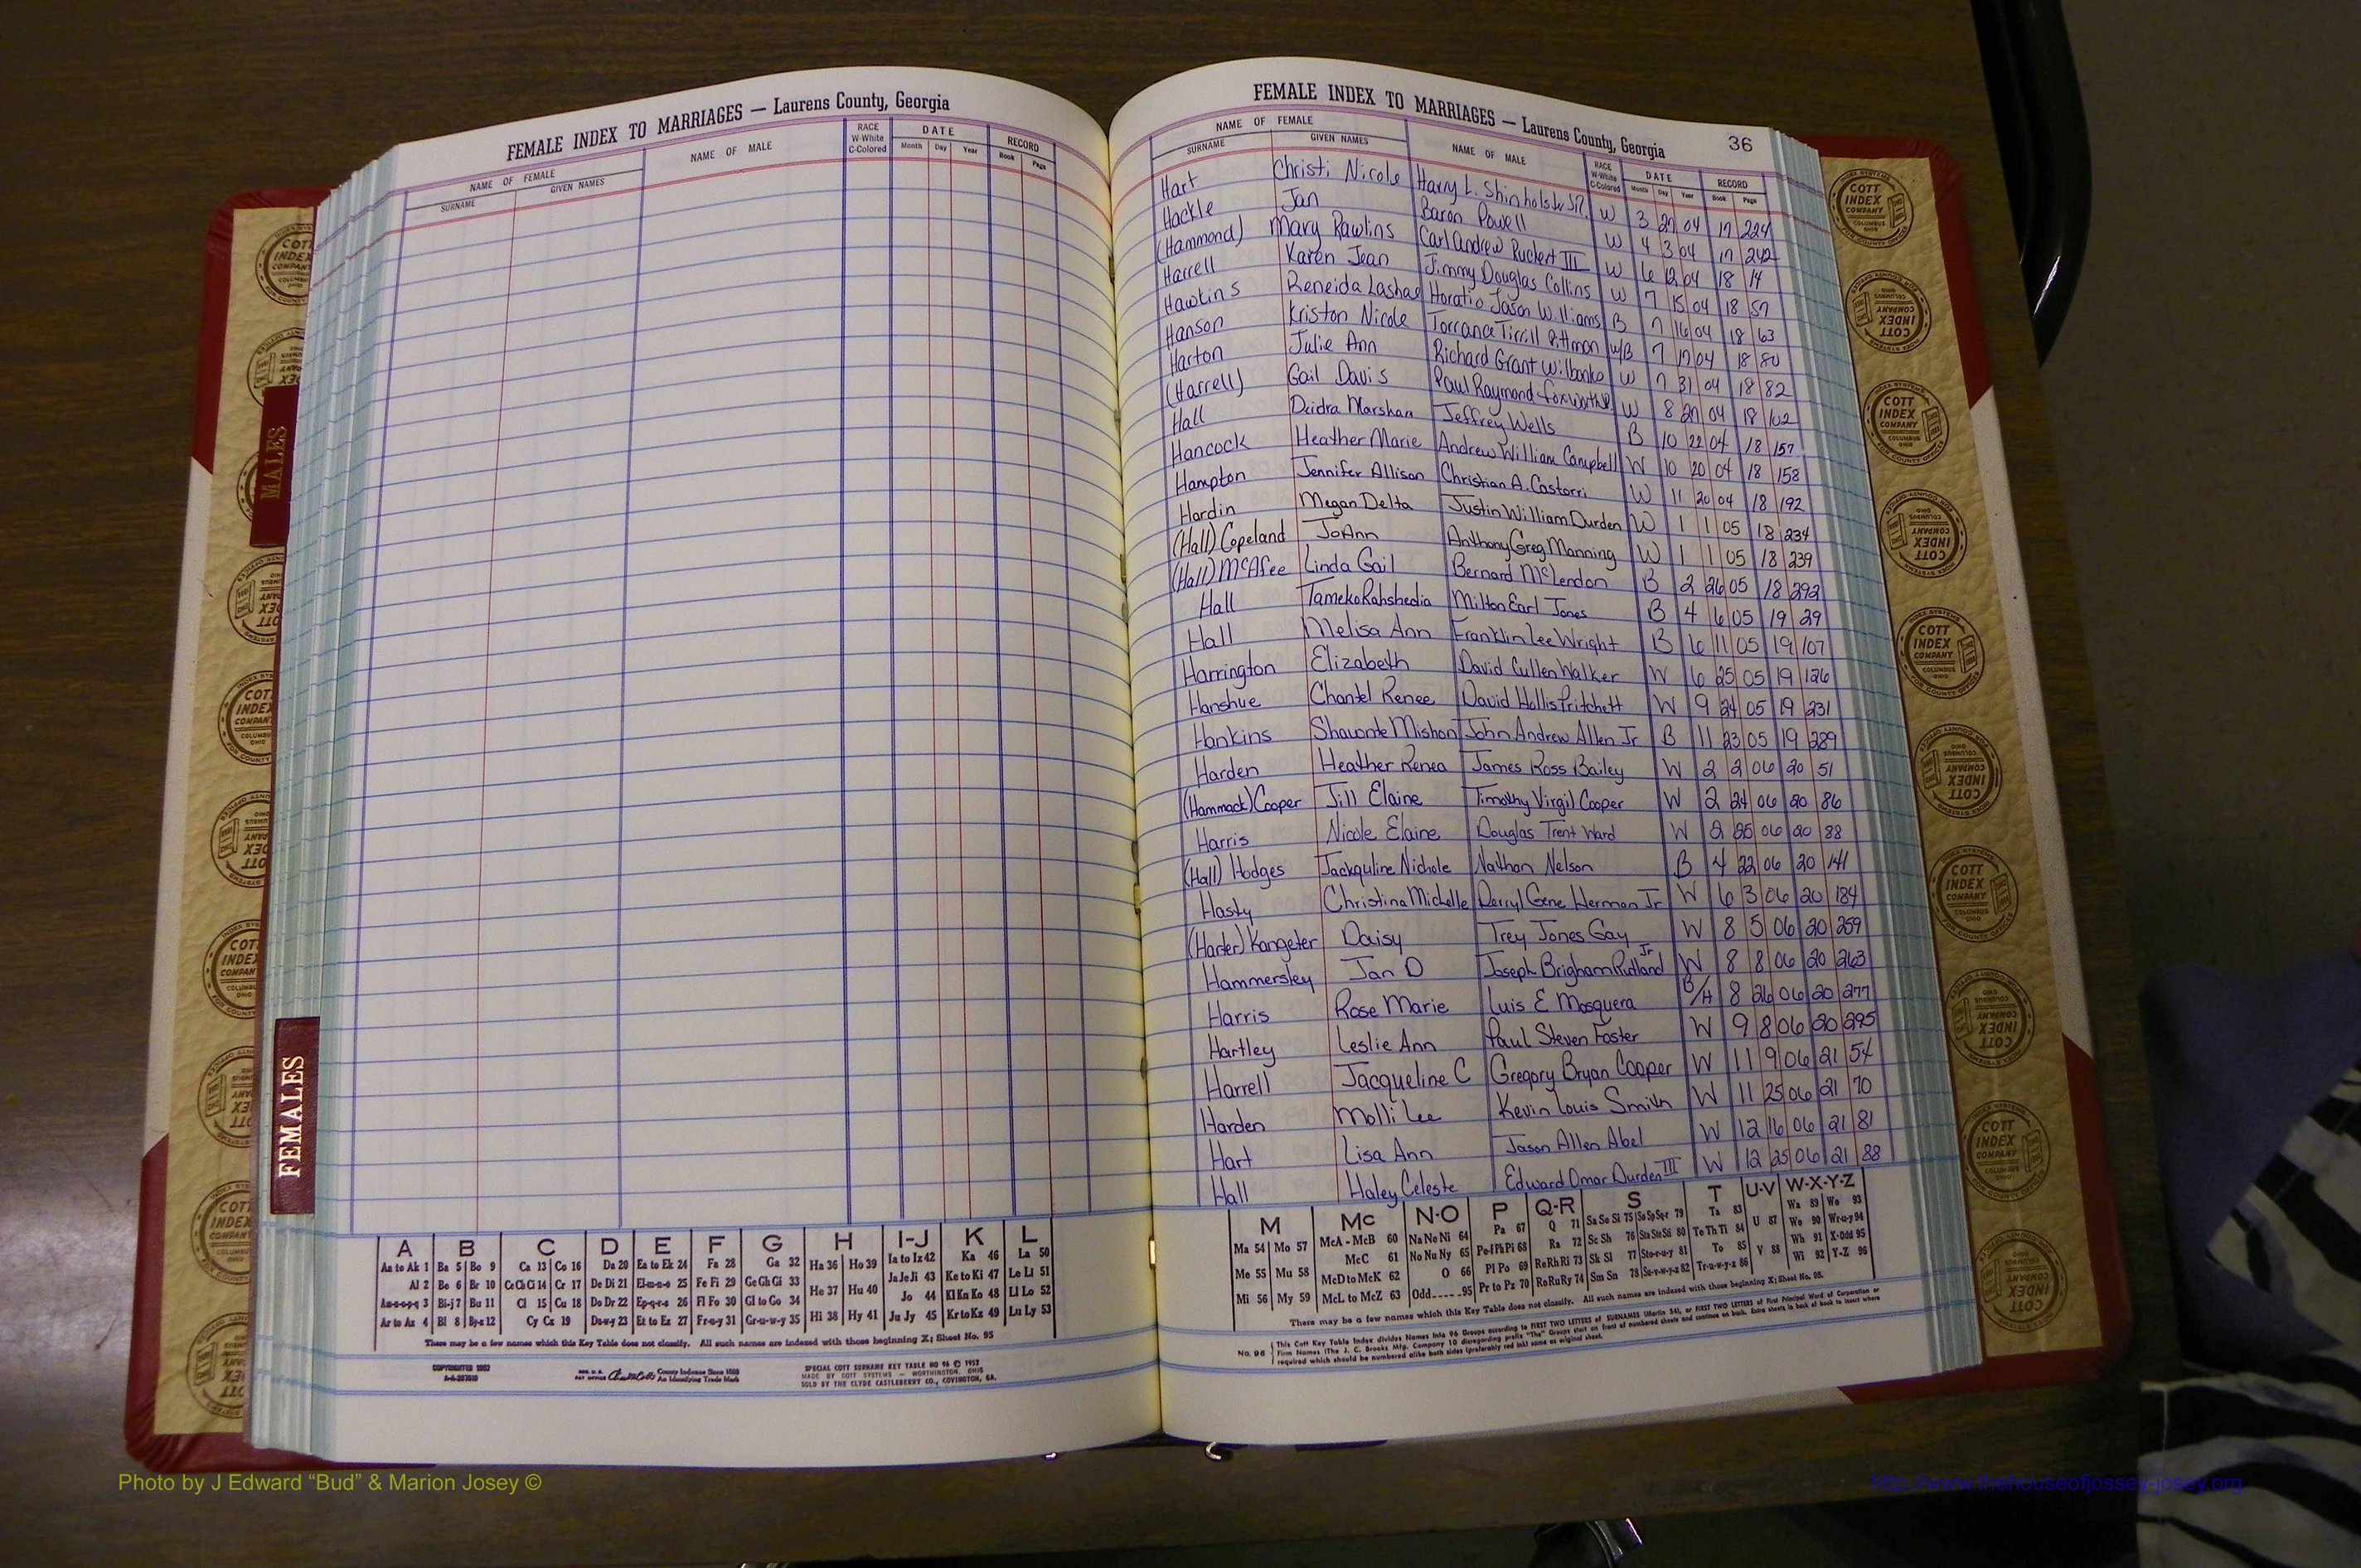 FEMALE INDEX TO MARRIAGES — Laurens County, Georgia
NAME OF FEMALE NAME OF MALE RACE W-White C-Colored DATE RECORD
SURNAME GIVEN NAMES Month Day Year Book Page
FEMALE INDEX TO MARRIAGES — Laurens County, Georgia 36
NAME OF FEMALE NAME OF MALE RACE W-White C-Colored DATE RECORD
SURNAME GIVEN NAMES Month Day Year Book Page
Hart Christi Nicole Harry L. Shinholster Jr. W 3 27 04 17 224
Hackle Jan Baron Powell W 4 3 04 17 242
(Hammond) Mary Rawlins Carl Andrew Ruckert III W 6 12 04 18 14
Harrell Karen Jean Jimmy Douglas Collins W 7 15 04 18 57
Hawkins Reneida Lashae Horatio Jason Williams B 7 16 04 18 63
Hanson Kriston Nicole Torrance Tirrill Pittman W/B 7 17 04 18 80
Harton Julie Ann Richard Grant Wilbanks W 7 31 04 18 82
(Harrell) Gail Davis Paul Raymond W 8 04 18 102
Hall Deidra Marshan Jeffrey Wells B 10 22 04 18 157
Hancock Heather Marie Andrew William Campbell W 10 20 04 18 158
Hampton Jennifer Allison Christian A. Castorri W 11 20 04 18 192
Hardin Megan Delta Justin William Durden W 1 1 05 18 234
(Hall) Copeland JoAnn Anthony Greg Manning W 1 1 05 18 239
(Hall) McAfee Linda Gail Bernard McLendon B 2 26 05 18 292
Hall Tameko Rahshedia Milton Earl Jones B 4 6 05 19 29
Hall Melisa Ann Franklin Lee Wright B 6 11 05 19 107
Harrington Elizabeth David Cullen Walker W 6 25 05 19 126
Hanshue Chantel Renee David Hollis Pritchett W 9 24 05 19 231
Hankins Shavonte Mishon John Andrew Allen Jr B 11 23 05 19 289
Harden Heather Renea James Ross Bailey W 2 2 06 20 51
(Hammack) Cooper Jill Elaine Timothy Virgil Cooper W 2 24 06 20 86
Harris Nicole Elaine Douglas Trent Ward W 2 25 06 20 88
(Hall) Hodges Jackquline Nichole Nathan Nelson B 4 22 06 20 141
Hasty Christina Michelle Derryl Gene Herman Jr W 6 3 06 20 184
(Harter) Kangeter Daisy Trey Jones Gay W 8 5 06 20 259
Hammersley Jan D Joseph Brigham Rutland Jr W 8 8 06 20 263
Harris Rose Marie Luis E Mosquera B/H 8 26 06 20 277
Hartley Leslie Ann Paul Steven Foster W 9 8 06 20 295
Harrell Jacqueline C Gregory Bryan Cooper W 11 9 06 21 54
Harden Molli Lee Kevin Louis Smith W 11 25 06 21 70
Hart Lisa Ann Jason Allen Abel W 12 16 06 21 81
Hall Haley Celeste Edward Omar Durden III W 12 25 06 21 88
MALES
FEMALES
A B C D E F G H I-J K L
Aa to Ak 1 Ba 5 Bo 9 Ca 13 Co 16 Da 20 Ea to Ek 24 Fa 28 Ga 32 Ha 36 Ho 39 Ia to Iz 42 Ka 46 La 50
Al 2 Be 6 Br 10 Ce Ch Ci 14 Cr 17 De Di 21 El-m-n-o 25 Fe Fi 29 Ge Gh Gi 33 He 37 Hu 40 Ja Je Ji 43 Ke to Ki 47 Le Li 51
Am-n-o-p-q 3 Bi-j 7 Bu 11 Cl 15 Cu 18 Do Dr 22 Ep-q-r-s 26 Fl Fo 30 Gl to Go 34 Jo 44 Kl Kn Ko 48 Ll Lo 52
Ar to Az 4 Bl 8 By-z 12 Cy Cz 19 Du-w-y 23 Et to Ez 27 Fr-u-y 31 Gr-u-w-y 35 Hi 38 Hy 41 Ju Jy 45 Kr to Kz 49 Lu Ly 53
There may be a few names which this Key Table does not classify. All such names are indexed with those beginning X; Sheet No. 95
SPECIAL COTT SURNAME KEY TABLE NO 96 © 1957
MADE BY COTT SYSTEMS — WORTHINGTON, OHIO
SOLD BY THE CLYDE CASTLEBERRY CO., COVINGTON, GA.
County Indexes Since 1888
An Identifying Trade Mark
M Mc N-O P Q-R S T U-V W-X-Y-Z
Ma 54 Mo 57 McA - McB 60 Na Ne Ni 64 Pa 67 Q 71 Sa Se Si 75 So Sp Sq-r 79 Ta 83 U 87 Wa 89 Wo 93
Me 55 Mu 58 McC 61 No Nu Ny 65 Pe-f Ph Pi 68 Ra 72 Sc Sh 76 Sta Ste Sti 80 Te Th Ti 84 We 90 Wr-u-y 94
McD to McK 62 O 66 Pl Po 69 Re Rh Ri 73 Sk Sl 77 Sto-r-u-y 81 To 85 V 88 Wh 91 X-Odd 95
Mi 56 My 59 McL to McZ 63 Odd-----95 Pr to Pz 70 Ro Ru Ry 74 Sm Sn 78 Su-v-w-y-z 82 Tr-u-w-y-z 86 Wi 92 Y-Z 96
There may be a few names which this Key Table does not classify. All such names are indexed with those beginning X; Sheet No. 95.
No. 96 This Cott Key Table Index divides Names into 96 Groups according to FIRST TWO LETTERS of SURNAMES (Martin 54), or FIRST TWO LETTERS of First Principal Word of Corporation or
Firm Names (The J. C. Brooks Mfg. Company 10 disregarding prefix "The" Groups start on front of numbered sheets and continue on back. Extra sheets in back of book to insert where
required which should be numbered alike both sides (preferably red ink) same as original sheet.
COTT INDEX COMPANY
COLUMBUS OHIO
INDEX SYSTEMS
FOR COUNTY OFFICES
Photo by J Edward “Bud” & Marion Josey ©
http://www.thehouseofjossey-josey.org